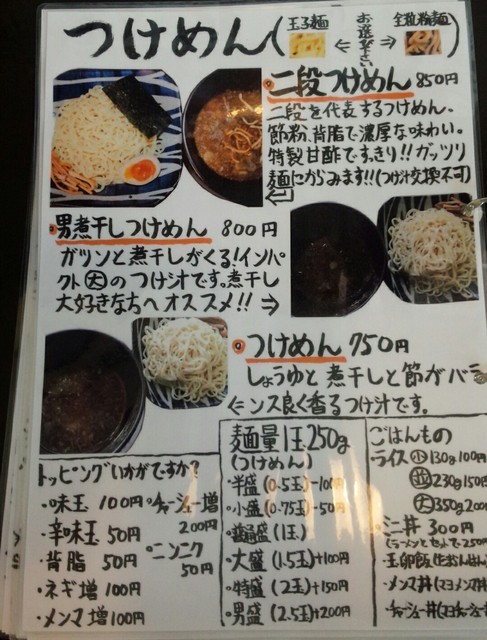 つけめん(玉子麺 ⇔ 全粒粉麺)
お選び下さい
二段つけめん 850円
二段を代表するつけめん。
節粉、背脂で濃厚な味わい。
特製甘酢ですっきり!!ガッツリ
麺にからみます!!(つけ汁交換不可)
男煮干しつけめん 800円
ガツンと煮干しがくる!インパ
クト大のつけ汁です。煮干し
大好きな方へオススメ!!→
つけめん 750円
しょうゆと煮干しと節がバラ
←ンス良く香るつけ汁です。
トッピングいかがですか?
・味玉 100円
・辛味玉 50円
・背脂 50円
・ネギ増 100円
・メンマ増 100円
・チャーシュー増
200円
・ニンニク
50円
麺量1玉250g
(つけめん)
・半盛(0.5玉)-100円
・小盛(0.75玉)-50円
・普通盛(1玉)
・大盛(1.5玉)+100円
・特盛(2玉)+150円
・男盛(2.5玉)+200円
ごはんもの
ライス 小 130g 100円
並 230g 150円
大 350g 200
・ミニ丼 300円
(ラーメンとセットで250円
・玉卵飯
・メンマ丼(マヨメンマ丼
・チャーシュー丼(マヨチャーシュー